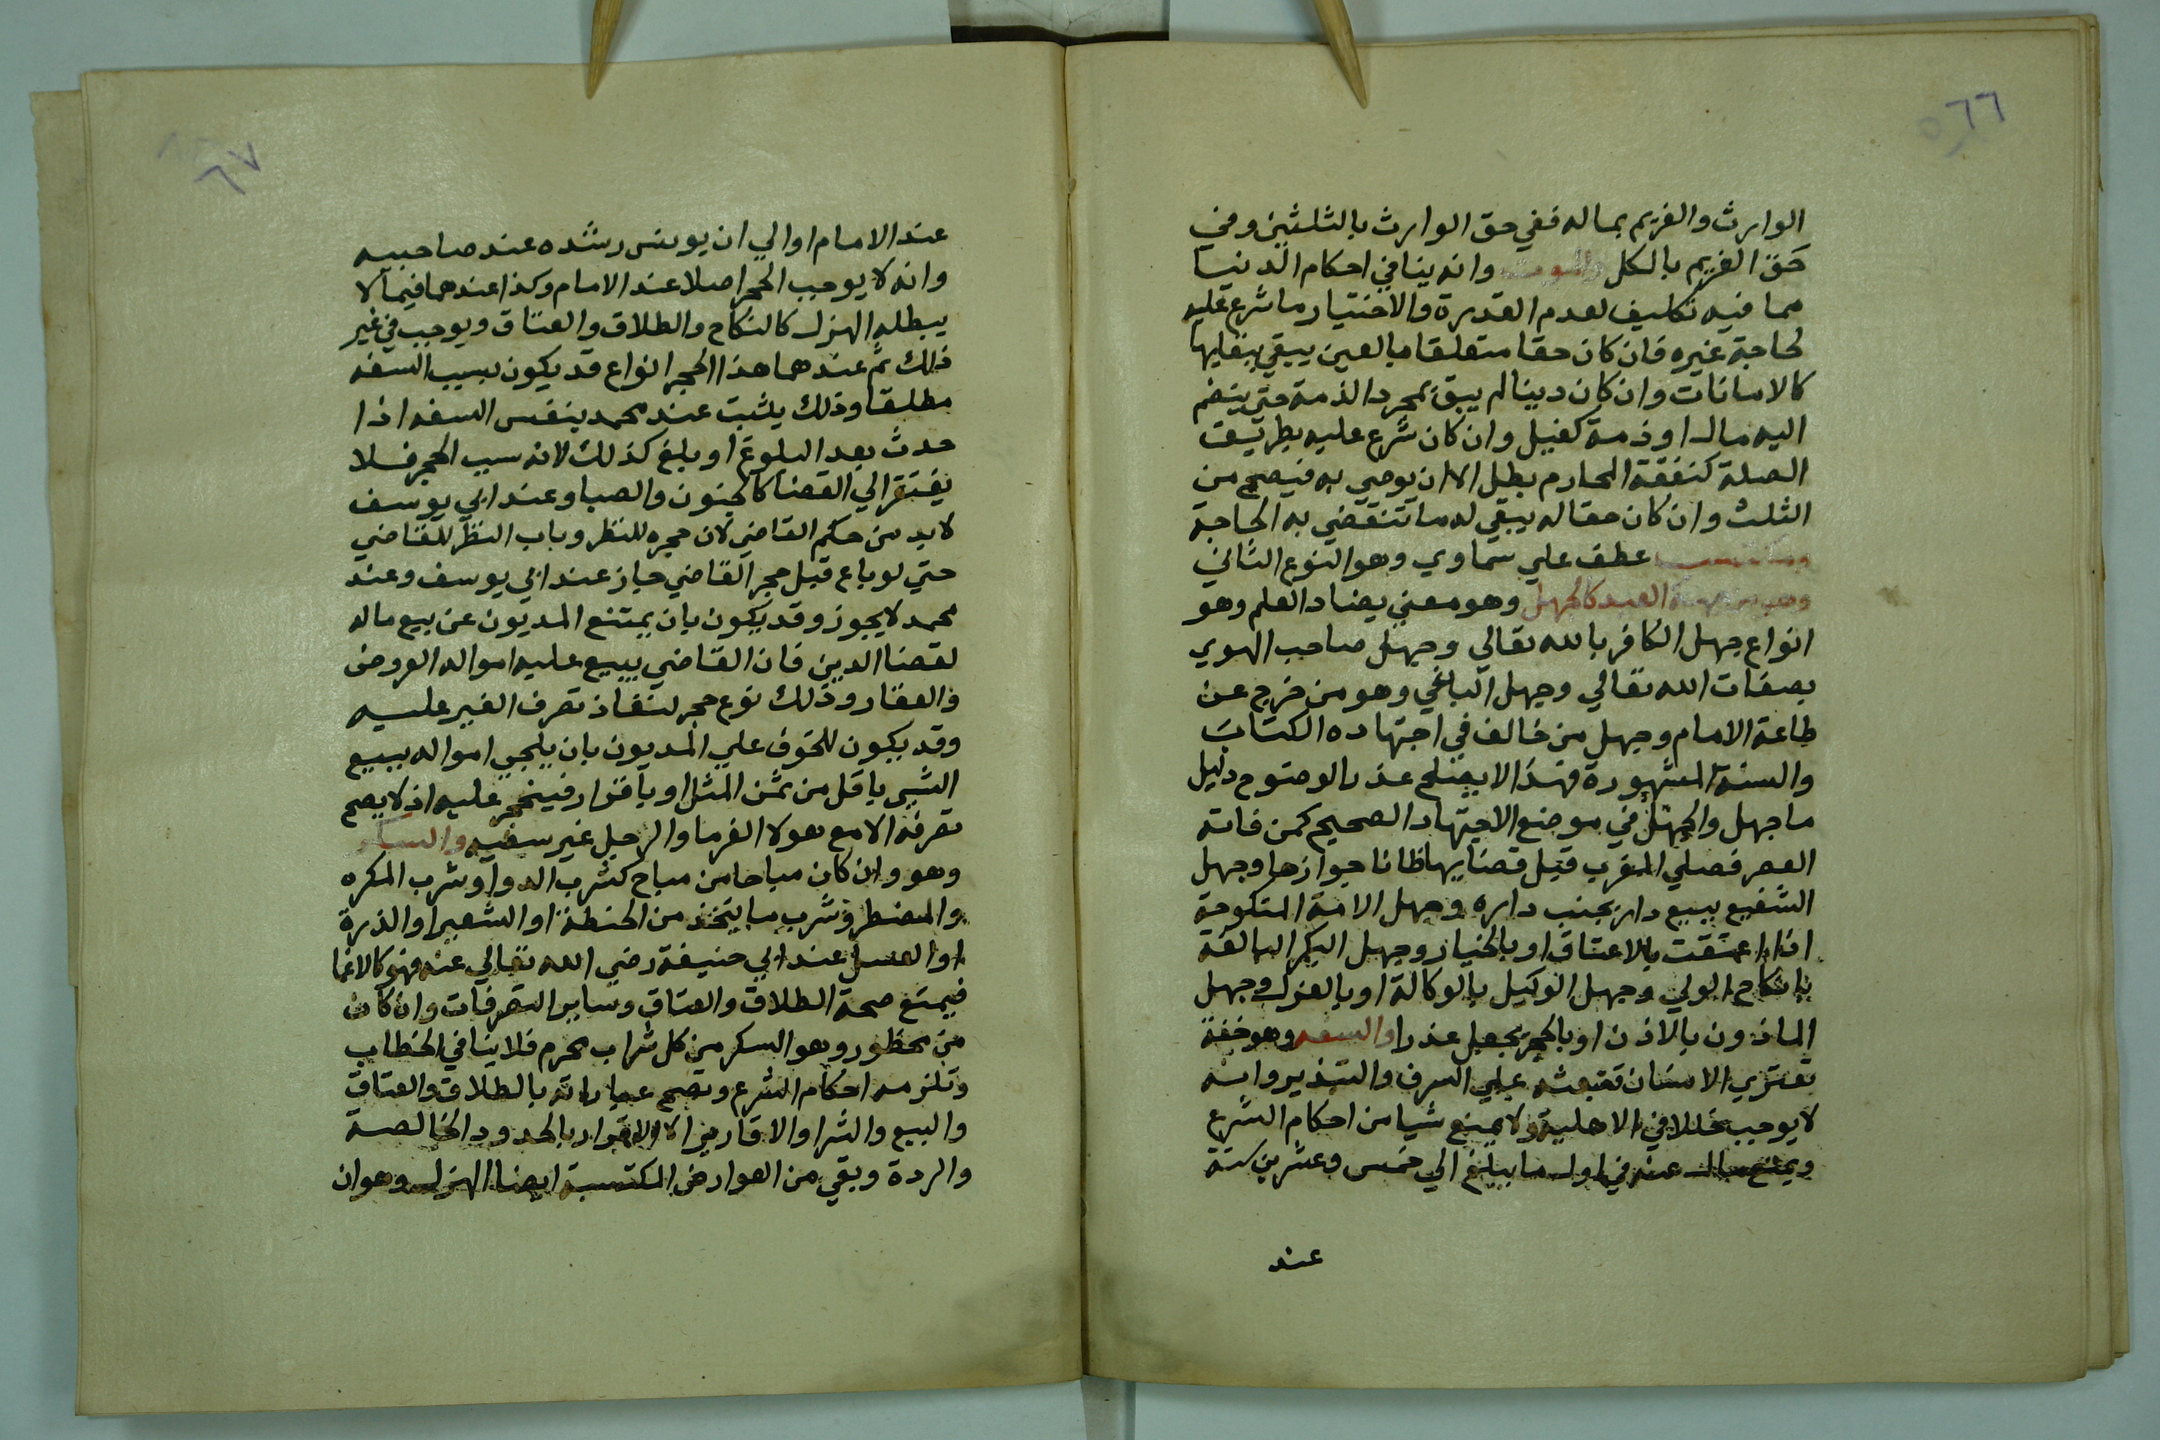 ٦٦
الوارث والغريم بماله ففي حق الوارث بالثلثين وفي
حق الغريم بالكل والموت وانه ينافي احكام الدنيا
مما فيه تكليف لعدم القدرة والاختيار وما شرع عليه
لحاجة غيره فان كان حقا متعلقا بالعين يبقي ببقايها
كالامانات وان كان دينا لم يبق بمجرد الذمة حتي ينضم
اليه مال او ذمة كفيل وان كان شرع عليه بطريق
الصلة كنفقة المحارم بطل الا ان يوصي به فيصح من
الثلث وان كان حقا له يبقي له ما تنقضي به الحاجة
عطف علي سماوي وهو النوع الثاني
وهو من جهة العبد كالجهل وهو معني يضاد العلم وهو
انواع جهل الكافر بالله تعالي وجهل صاحب الهوي
بصفات الله تعالي وجهل الباغي وهو من خرج عن
طاعة الامام وجهل من خالف في اجتهاده الكتاب
والسنة المشهورة فهذا لا يصلح عذرا لوضوح دليل
ما جهل والجهل في موضع الاجتهاد الصحيح كمن فاته
العصر فصلي المغرب قبل قضايها ظانا جوازها وجهل
الشفيع ببيع دار بجنب داره وجهل الامة المنكوحة
اذا اعتقت بالاعتاق او بالخيار وجهل البكر البالغة
بانكاح الولي وجهل الوكيل بالوكالة او بالعزل وجهل
الماذون بالاذن او بالحجر يجعل عذرا والسفه وهو خفة
تعتري الانسان فتبعثه علي السرف والتبذير وانه
لا يوجب خللا في الاهلية ولا يمنع شيا من احكام الشرع
ويمنع ماله عنه في اول ما يبلغ الي خمس وعشرين سنة
عند
٦٧
عند الامام او الي ان يونس رشده عند صاحبيه
وانه لا يوجب الحجر اصلا عند الامام وكذا عندهما فيما لا
يبطله الهزل كالنكاح والطلاق والعتاق ويوجب في غير
ذلك ثم عندهما هذا الحجر انواع قد يكون بسبب السفه
مطلقا وذلك يثبت عند محمد بنفس السفه اذا
حدث بعد البلوغ او بلغ كذلك لانه سبب الحجر فلا
يفتقر الي القضا كالجنون والصبا وعند ابي يوسف
لابد من حكم القاضي لان حجره للنظر وباب النظر للقاضي
حتي لو باع قبل حجر القاضي جاز عند ابي يوسف وعند
محمد لا يجوز وقد يكون بان يمتنع المديون عن بيع ماله
لقضا الدين فان القاضي يبيع عليه امواله العروض
والعقار وذلك نوع حجر لنفاذ تصرف الغير عليه
وقد يكون للخوف علي المديون بان يلجي امواله ببيع
الشي باقل من ثمن المثل او باقرار فيحجر عليه اذ لا يصح
تصرفه الا مع هولا الغرما والرجل غير سفيه والسكر
وهو وان كان مباحا من مباح كشرب الدوا وشرب المكره
والمضطر وشرب ما يتخذ من الحنطة او الشعير او الذرة
او العسل عند ابي حنيفة رضي الله تعالي عنه فهو كالاغما
فيمنع صحة الطلاق والعتاق وساير التصرفات وان كان
من محظور وهو السكر من كل شراب محرم فلا ينافي الخطاب
وتلزمه احكام الشرع وتصح عباراته بالطلاق والعتاق
والبيع والشرا والاقارير الا الاقرار بالحدود الخالصة
والردة وبقي من العوارض المكتسبة ايضا الهزل وهو ان